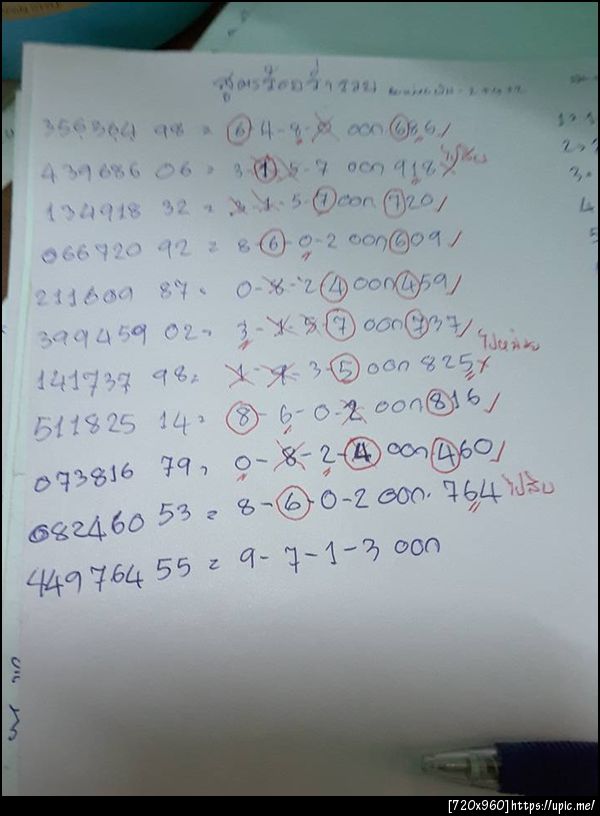 356364 98 = 6 4-8-0 ออก 686 /
439686 06 = 3-1-5-7 ออก 918 x ไปสิบ
134918 32 = 3-1-5-7 ออก 720 /
066720 92 = 8-6-0-2 ออก 609 /
211609 87 = 0-8-2 4 ออก 459 /
399459 02 = 3-1-5-7 ออก 737 /
141737 98 = 1-9-3-5 ออก 825 x ไปหน่วย
511825 14 = 8-6-0-2 ออก 816 /
073816 79 = 0-8-2-4 ออก 460 /
082460 53 = 8-6-0-2 ออก. 764 ไปสิบ
449764 55 = 9-7-1-3 ออก
1>.1
2,>
3.
4
5
[720x960] https://upic.me/